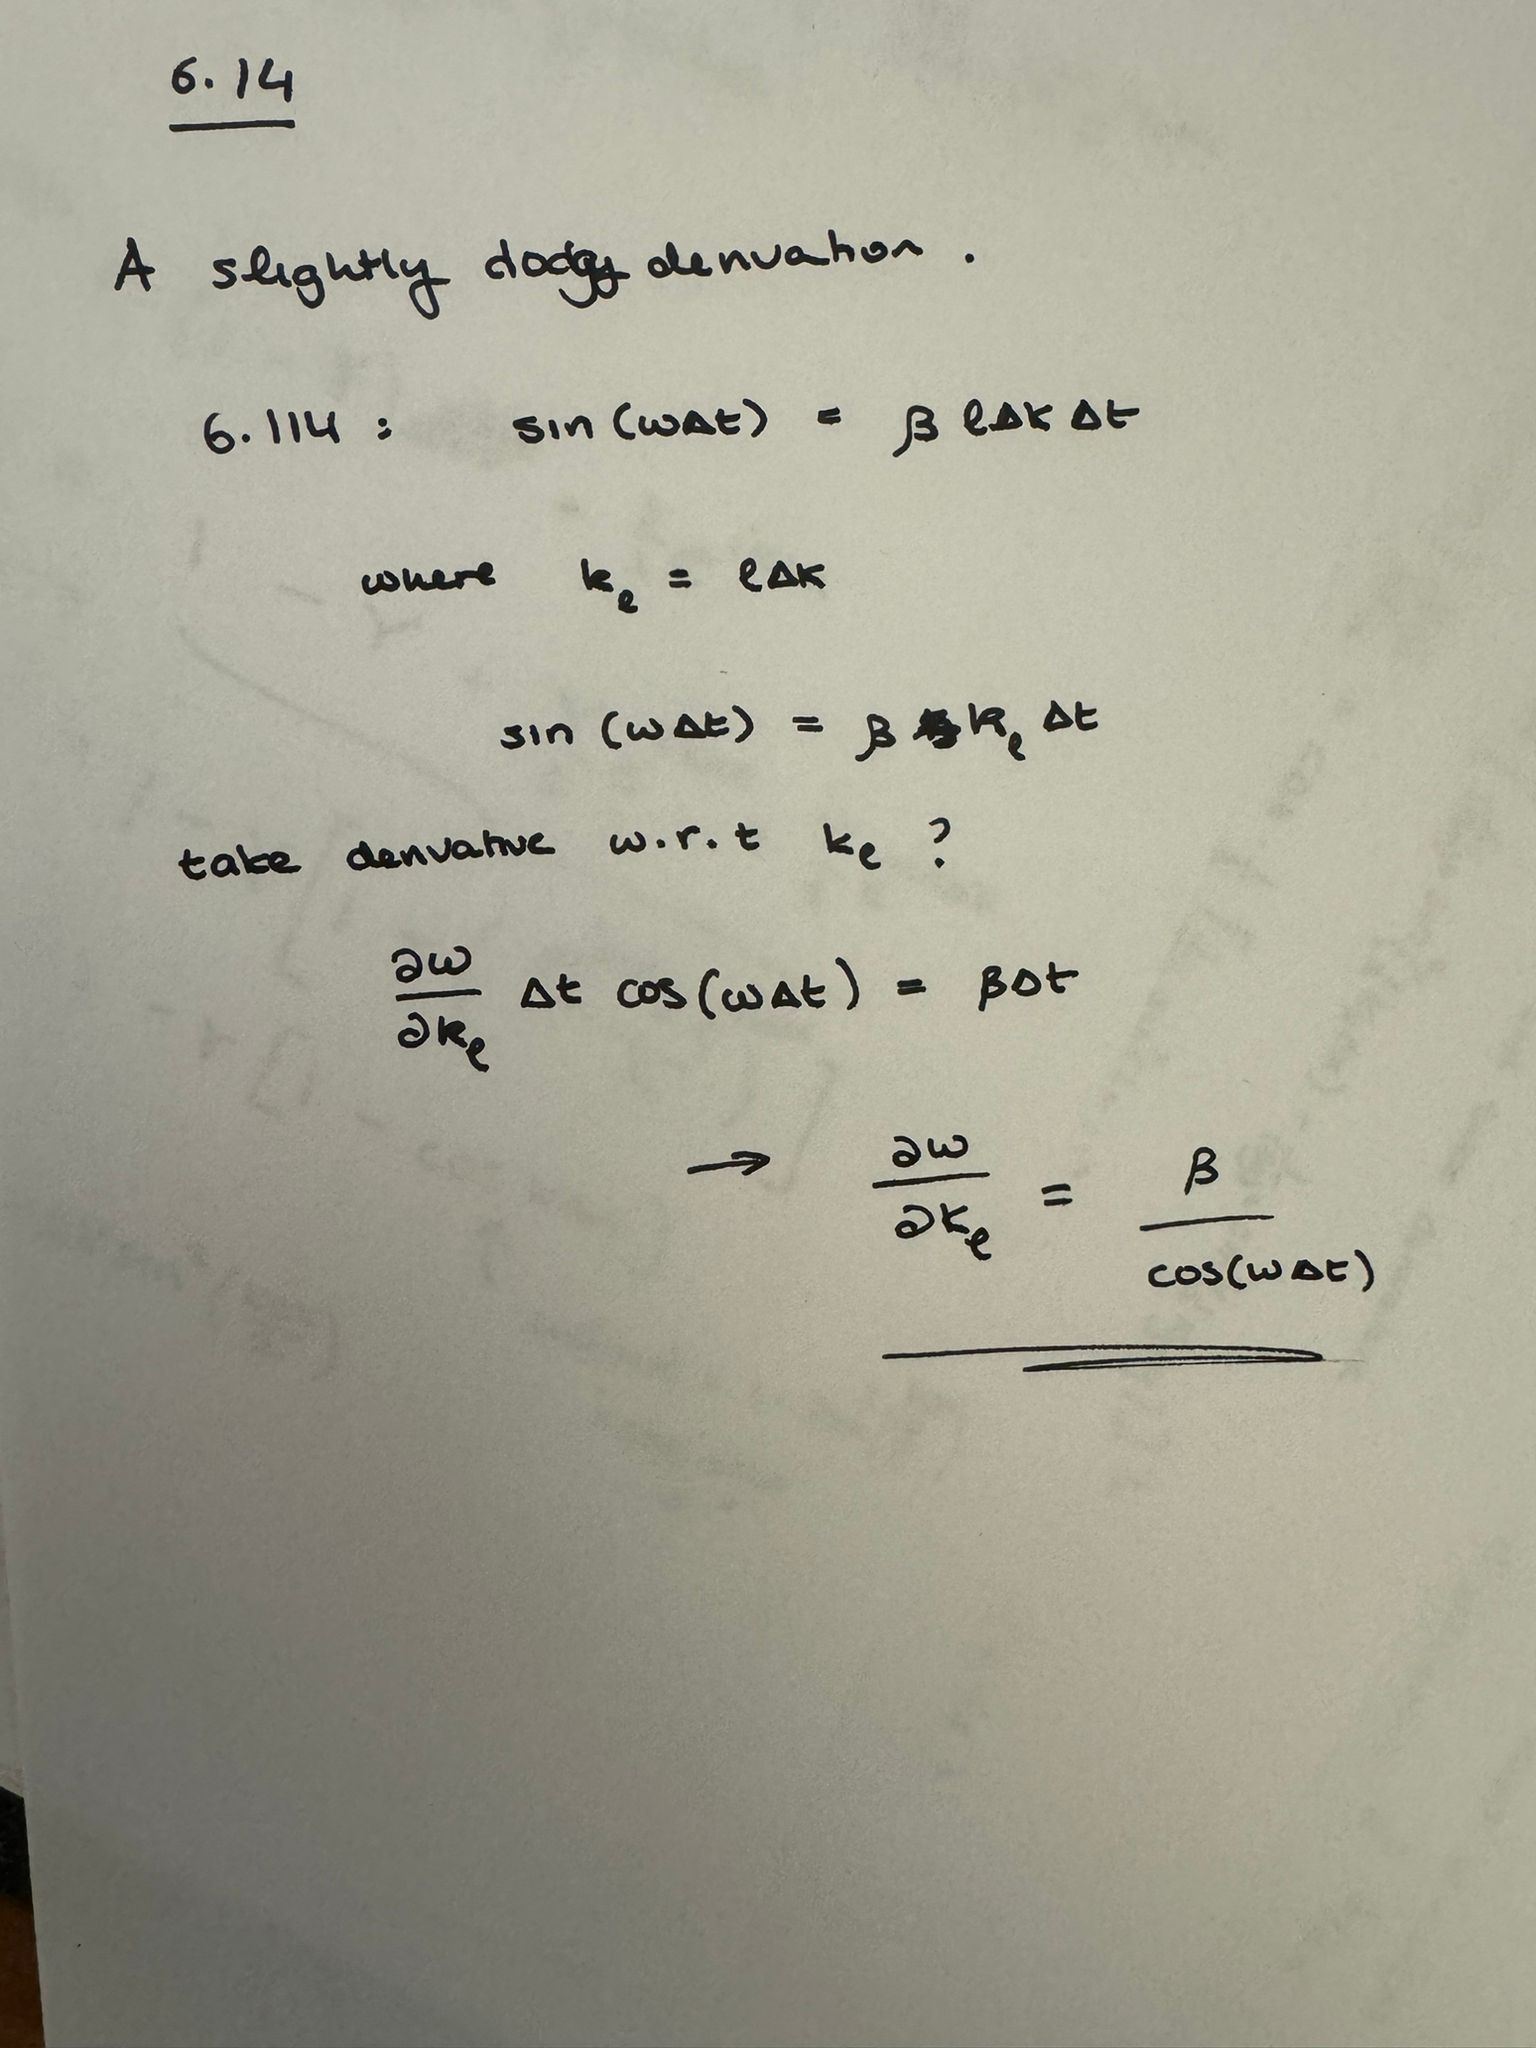 6.14
A slightly dodgy derivation.
6.114: sin(ωΔt) = β ℓΔk Δt
where kℓ = ℓΔk
sin(ωΔt) = β kℓ Δt
take derivative w.r.t kℓ ?
∂ω/∂kℓ Δt cos(ωΔt) = βΔt
→ ∂ω/∂kℓ = β/cos(ωΔt)